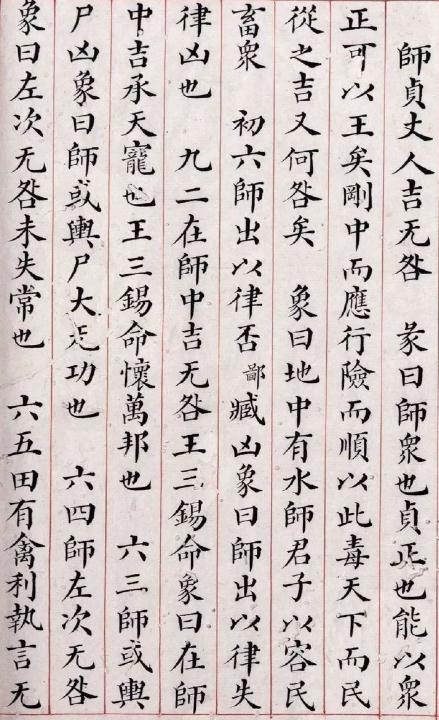 師貞丈人吉无咎　彖曰師衆也貞正也能以衆
正可以王矣剛中而應行險而順以此毒天下而民
從之吉又何咎矣　象曰地中有水師君子以容民
畜衆　初六師出以律否鄙臧凶象曰師出以律失
律凶也　九二在師中吉无咎王三錫命象曰在師
中吉承天寵也王三錫命懷萬邦也　六三師或輿
尸凶象曰師或輿尸大无功也　六四師左次无咎
象曰左次无咎未失常也　六五田有禽利執言无